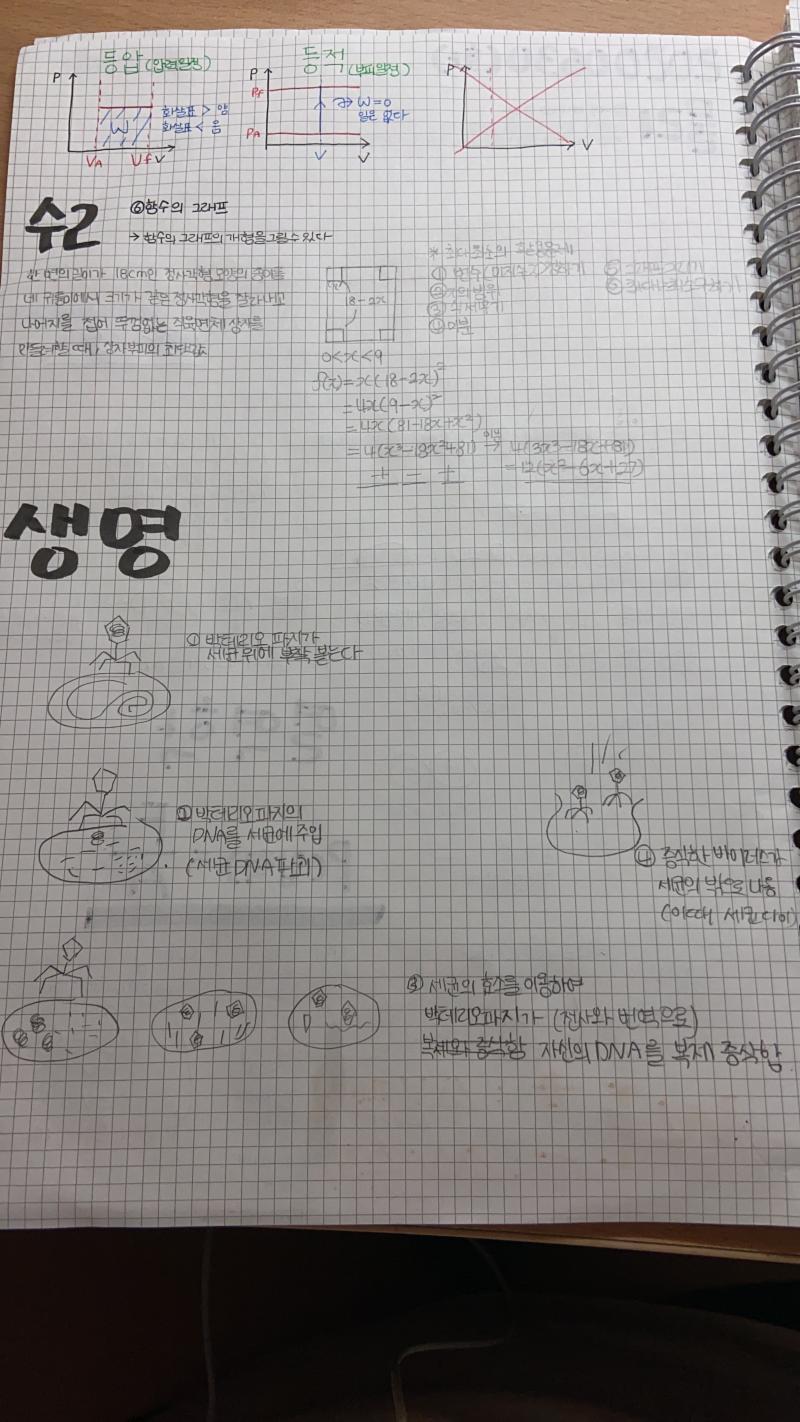 등압 (압력일정)
P
화살표 > 양
화살표 < 음
W
VA Vf V
등적 (부피일정)
P
Pf
PA
→ W=0
일은 없다
V V
P
V
수2
⑥ 함수의 그래프
→ 함수의 그래프의 개형을 그릴 수 있다
한 변의 길이가 18cm인 정사각형 모양의 종이를
네 귀퉁이에서 크기가 같은 정사각형을 잘라내고
나머지를 접어 뚜껑없는 직육면체 상자를
만들려할 때, 상자부피의 최댓값
18-2x
0<x<9
f(x)=x(18-2x)²
=4x(9-x)²
=4x(81-18x+x²)
=4(x³-18x²+81) 미분→ 4(3x²-18x+81)
+ - + =12(x²-6x+27)
* 최대최소의 활용문제
① 변수(미지수) 정하기
② x의 범위
③ 식세우기
④ 미분
⑤ 그래프 그리기
⑥ 최대 최소 구하기
생명
① 박테리오 파지가
세균위에 부착 붙는다
② 박테리오파지의
DNA를 세균에 주입
(세균 DNA 파괴)
④ 증식한 바이러스가
세균의 밖으로 나옴
(이때 세균 다이)
③ 세균의 효소를 이용하여
박테리오파지가 (전사와 번역으로)
복제와 증식함 자신의 DNA를 복제 증식함